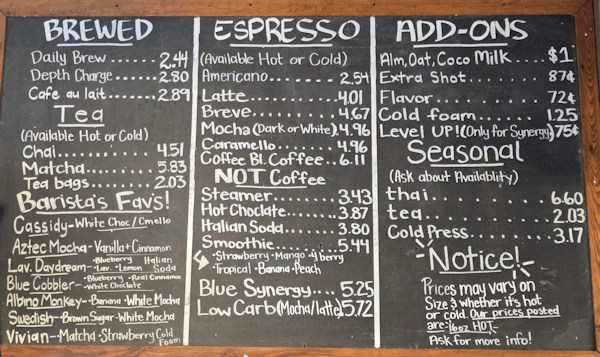 BREWED
Daily Brew......2.44
Depth Charge.....2.80
Cafe au lait......2.89
Tea
(Available Hot or Cold)
Chai..........4.51
Matcha........5.83
Tea bags.......2.03
Barista's Fav's!
Cassidy-White Choc/Cmello
Aztec Mocha-Vanilla+Cinnamon
Lav. Daydream-Blueberry -Lav. -Lemon Italian Soda
Blue Cobbler-Blueberry -Real Cinnamon -White Choclate
Albino Monkey-Banana-White Mocha
Swedish-Brown Sugar-White Mocha
Vivian-Matcha-Strawberry Cold Foam
ESPRESSO
(Available Hot or Cold)
Americano.........2.54
Latte...........4.01
Breve..........4.67
Mocha(Dark or White).4.96
Caramello.......4.96
Coffee Bl. Coffee..6.11
NOT Coffee
Steamer........3.43
Hot Choclate....3.87
Italian Soda.....3.80
Smoothie.......5.44
-Strawberry-Mango-4berry
-Tropical-Banana-Peach
Blue Synergy....5.25
Low Carb(Mocha/latte)5.72
ADD-ONS
Alm,Oat,Coco Milk....$1
Extra Shot..........87¢
Flavor............72¢
Cold foam........1.25
Level UP!(Only for Synergy)75¢
Seasonal
(Ask about Availablity)
thai............6.60
tea............2.03
Cold Press.......3.17
Notice!
Prices may vary on
Size & whether it's hot
or cold. Our prices posted
are: 16oz HOT
Ask for more info!